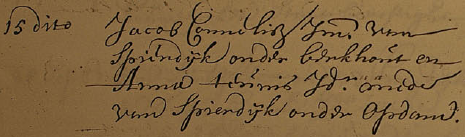 15 dito Jacob Cornelisz Jm: van
Spierdijk onder berkhout en
Anna teunis Jd: mede
van Spierdijk onder Opdam.